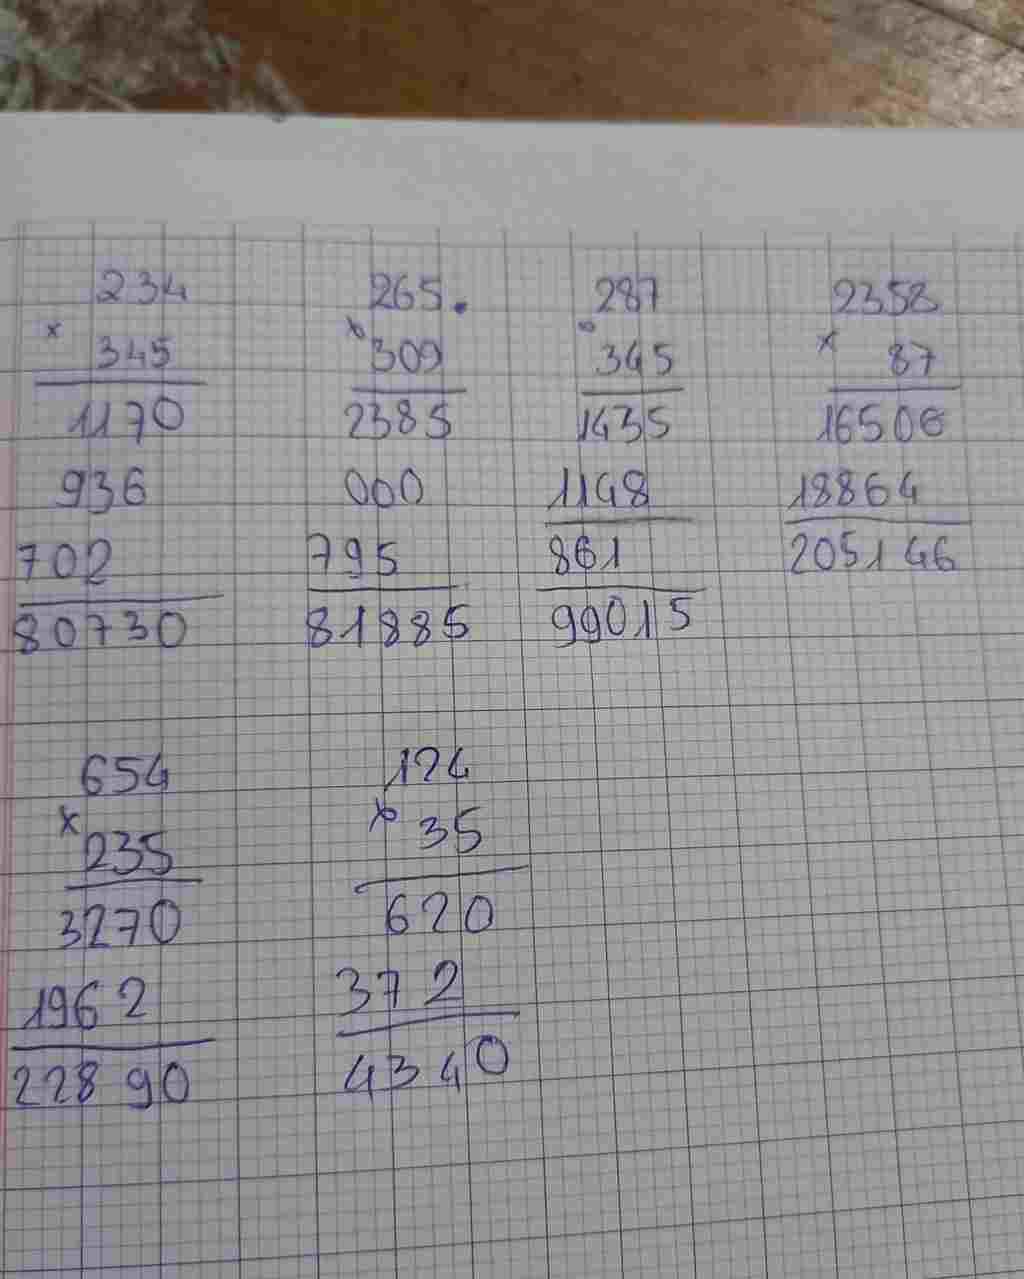 234
x 345
1170
936
702
80730
265.
x 309
2385
000
795
81885
287
x 345
1435
1148
861
99015
2358
x 87
16506
18864
205146
654
x 235
3270
1962
22890
124
x 35
620
372
4340